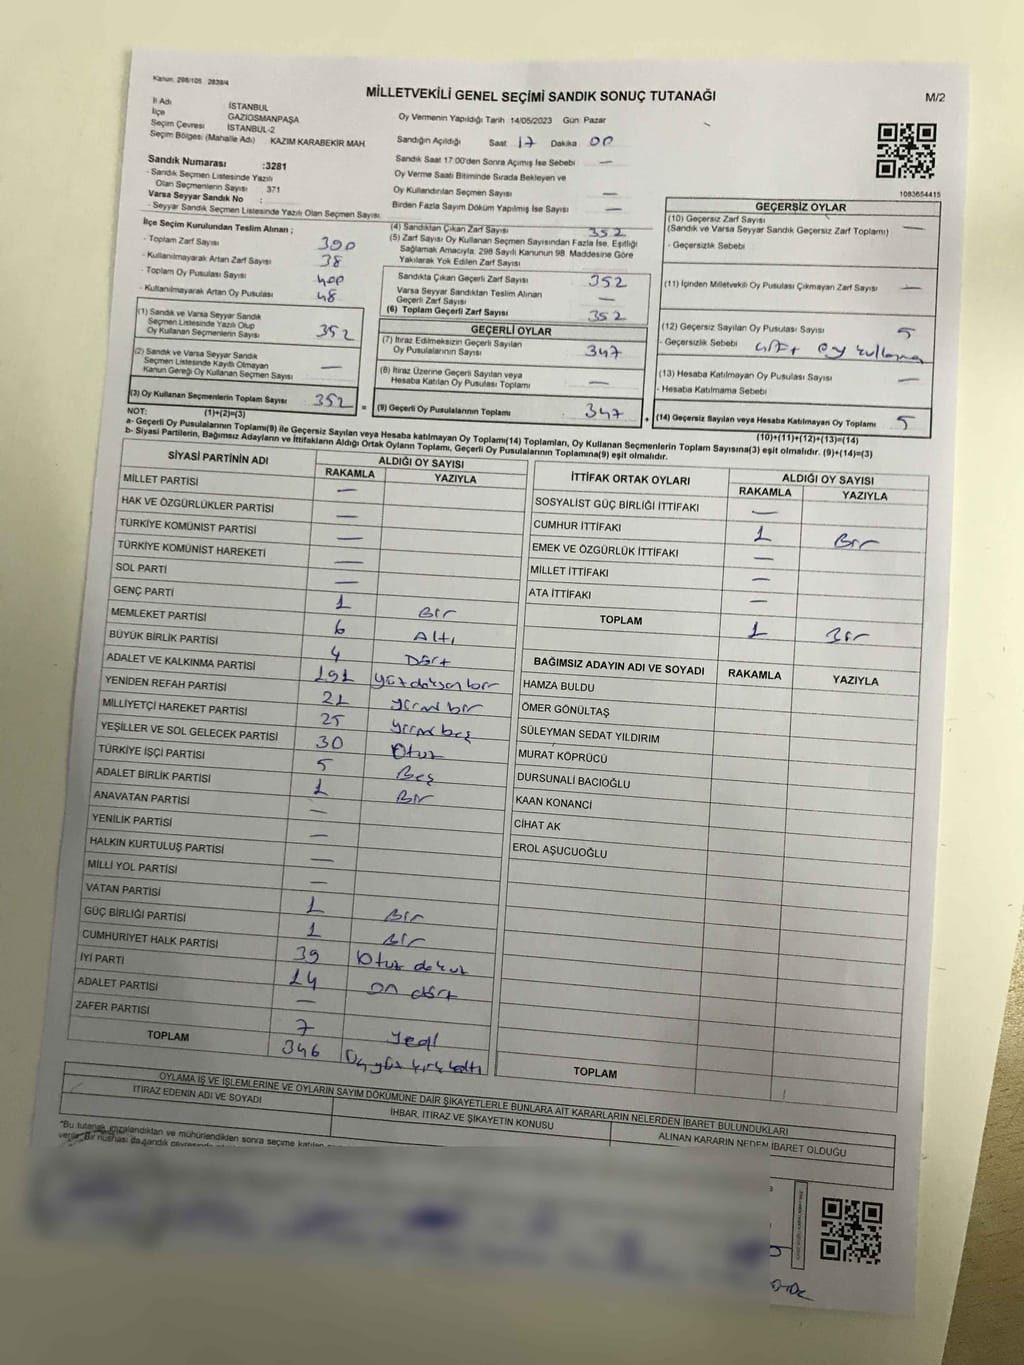 Kanun: 298/105 2839/4
MİLLETVEKİLİ GENEL SEÇİMİ SANDIK SONUÇ TUTANAĞI
M/2
İl Adı İSTANBUL
İlçe GAZİOSMANPAŞA
Seçim Çevresi İSTANBUL-2
Seçim Bölgesi (Mahalle Adı) KAZIM KARABEKİR MAH
Oy Vermenin Yapıldığı Tarih 14/05/2023 Gün Pazar
Sandığın Açıldığı Saat 17 Dakika 00
Sandık Saat 17:00'den Sonra Açımış İse Sebebi —
Oy Verme Saati Bitiminde Sırada Bekleyen ve
Oy Kullandırılan Seçmen Sayısı —
Birden Fazla Sayım Döküm Yapılmış İse Sayısı —
1083654415
Sandık Numarası :3281
- Sandık Seçmen Listesinde Yazılı
Olan Seçmenlerin Sayısı 371
Varsa Seyyar Sandık No :
- Seyyar Sandık Seçmen Listesinde Yazılı Olan Seçmen Sayısı
İlçe Seçim Kurulundan Teslim Alınan ;
- Toplam Zarf Sayısı 390
- Kullanılmayarak Artan Zarf Sayısı 38
- Toplam Oy Pusulası Sayısı 400
- Kullanılmayarak Artan Oy Pusulası 48
(1) Sandık ve Varsa Seyyar Sandık
Seçmen Listesinde Yazılı Olup
Oy Kullanan Seçmenlerin Sayısı 352
(2) Sandık ve Varsa Seyyar Sandık
Seçmen Listesinde Kayıtlı Olmayan
Kanun Gereği Oy Kullanan Seçmen Sayısı —
(3) Oy Kullanan Seçmenlerin Toplam Sayısı 352
(4) Sandıktan Çıkan Zarf Sayısı 352
(5) Zarf Sayısı Oy Kullanan Seçmen Sayısından Fazla İse, Eşitliği
Sağlamak Amacıyla; 298 Sayılı Kanunun 98. Maddesine Göre
Yakılarak Yok Edilen Zarf Sayısı
Sandıkta Çıkan Geçerli Zarf Sayısı 352
Varsa Seyyar Sandıktan Teslim Alınan
Geçerli Zarf Sayısı —
(6) Toplam Geçerli Zarf Sayısı 352
GEÇERLİ OYLAR
(7) İtiraz Edilmeksizin Geçerli Sayılan
Oy Pusulalarının Sayısı 347
(8) İtiraz Üzerine Geçerli Sayılan veya
Hesaba Katılan Oy Pusulası Toplamı —
= (9) Geçerli Oy Pusulalarının Toplamı 347
GEÇERSİZ OYLAR
(10) Geçersiz Zarf Sayısı
(Sandık ve Varsa Seyyar Sandık Geçersiz Zarf Toplamı) —
- Geçersizlik Sebebi
(11) İçinden Milletvekili Oy Pusulası Çıkmayan Zarf Sayısı —
(12) Geçersiz Sayılan Oy Pusulası Sayısı 5
- Geçersizlik Sebebi çift oy kullanma
(13) Hesaba Katılmayan Oy Pusulası Sayısı —
- Hesaba Katılmama Sebebi
+ (14) Geçersiz Sayılan veya Hesaba Katılmayan Oy Toplamı 5
NOT: (1)+(2)=(3)
(10)+(11)+(12)+(13)=(14)
a- Geçerli Oy Pusulalarının Toplamı(9) ile Geçersiz Sayılan veya Hesaba katılmayan Oy Toplamı(14) Toplamları, Oy Kullanan Seçmenlerin Toplam Sayısına(3) eşit olmalıdır. (9)+(14)=(3)
b- Siyasi Partilerin, Bağımsız Adayların ve İttifakların Aldığı Ortak Oyların Toplamı, Geçerli Oy Pusulalarının Toplamına(9) eşit olmalıdır.
SİYASİ PARTİNİN ADI ALDIĞI OY SAYISI
RAKAMLA YAZIYLA
MİLLET PARTİSİ —
HAK VE ÖZGÜRLÜKLER PARTİSİ —
TÜRKİYE KOMÜNİST PARTİSİ —
TÜRKİYE KOMÜNİST HAREKETİ —
SOL PARTİ —
GENÇ PARTİ 1 Bir
MEMLEKET PARTİSİ 6 Altı
BÜYÜK BİRLİK PARTİSİ 4 Dört
ADALET VE KALKINMA PARTİSİ 191 yüzdoksan bir
YENİDEN REFAH PARTİSİ 21 yirmi bir
MİLLİYETÇİ HAREKET PARTİSİ 25 yirmi beş
YEŞİLLER VE SOL GELECEK PARTİSİ 30 Otuz
TÜRKİYE İŞÇİ PARTİSİ 5 Beş
ADALET BİRLİK PARTİSİ 1 Bir
ANAVATAN PARTİSİ —
YENİLİK PARTİSİ —
HALKIN KURTULUŞ PARTİSİ —
MİLLİ YOL PARTİSİ —
VATAN PARTİSİ 1 Bir
GÜÇ BİRLİĞİ PARTİSİ 1 Bir
CUMHURİYET HALK PARTİSİ 39 Otuz dokuz
İYİ PARTİ 14 on dört
ADALET PARTİSİ —
ZAFER PARTİSİ 7 yedi
TOPLAM 346 Üçyüz kırk altı
İTTİFAK ORTAK OYLARI ALDIĞI OY SAYISI
RAKAMLA YAZIYLA
SOSYALİST GÜÇ BİRLİĞİ İTTİFAKI —
CUMHUR İTTİFAKI 1 Bir
EMEK VE ÖZGÜRLÜK İTTİFAKI —
MİLLET İTTİFAKI —
ATA İTTİFAKI —
TOPLAM 1 Bir
BAĞIMSIZ ADAYIN ADI VE SOYADI RAKAMLA YAZIYLA
HAMZA BULDU
ÖMER GÖNÜLTAŞ
SÜLEYMAN SEDAT YILDIRIM
MURAT KÖPRÜCÜ
DURSUNALİ BACIOĞLU
KAAN KONANCİ
CİHAT AK
EROL AŞUCUOĞLU
TOPLAM
OYLAMA İŞ VE İŞLEMLERİNE VE OYLARIN SAYIM DÖKÜMÜNE DAİR ŞİKAYETLERLE BUNLARA AİT KARARLARIN NELERDEN İBARET BULUNDUKLARI
İTİRAZ EDENİN ADI VE SOYADI İHBAR, İTİRAZ VE ŞİKAYETİN KONUSU ALINAN KARARIN NEDEN İBARET OLDUĞU
*Bu tutanak imzalandıktan ve mühürlendikten sonra seçime katılan
verilir. Bir nüshası da sandık çevresinde